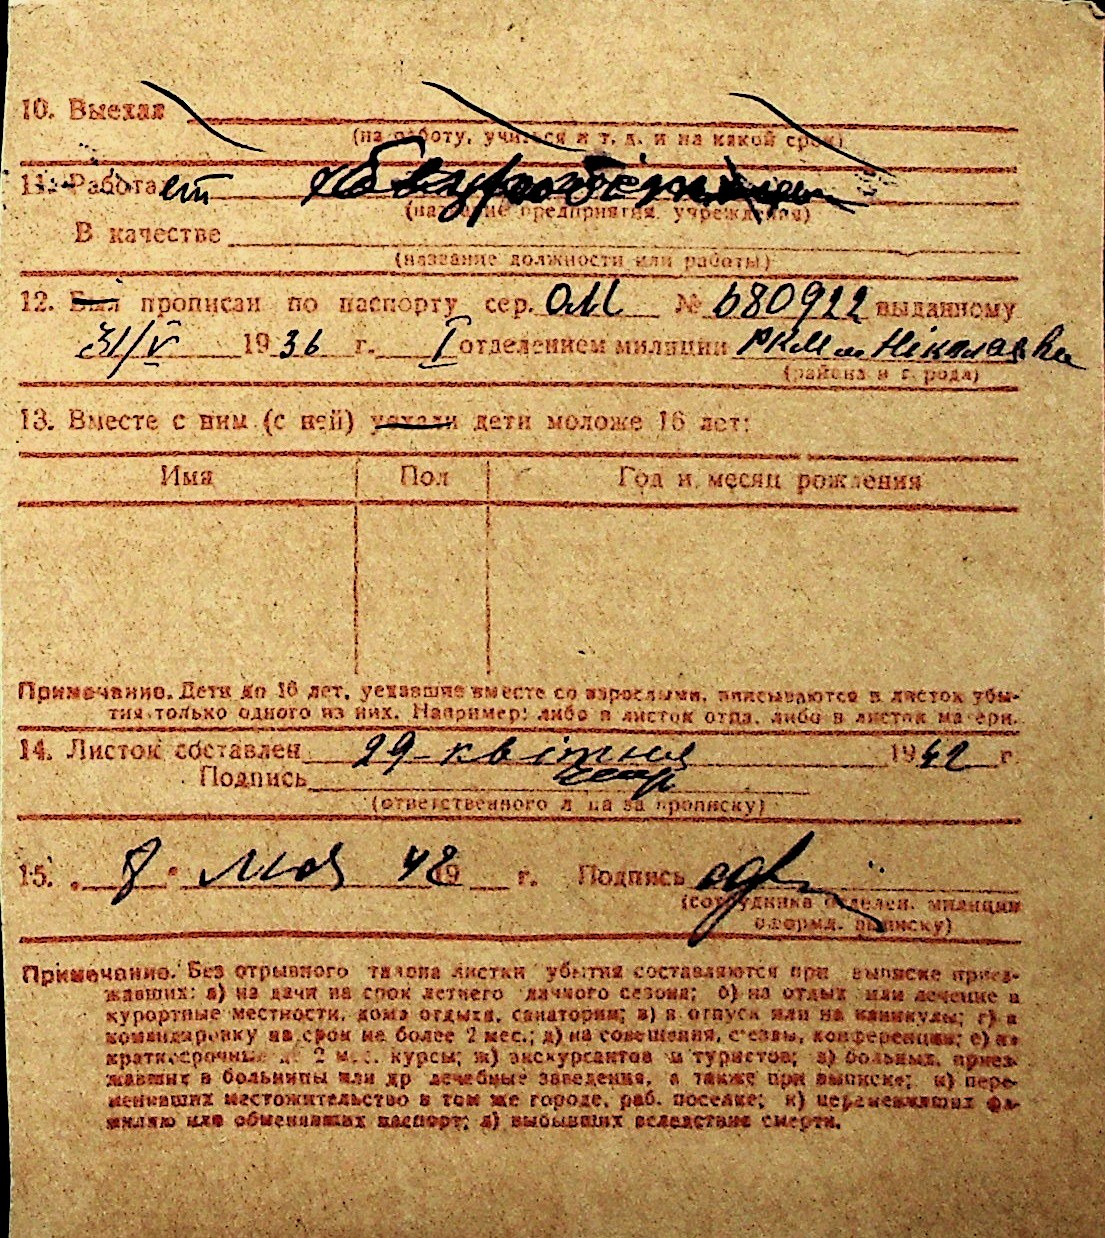 10. Выехал
(на работу, учиться и т. д. и на какой срок)
11. Работает
(название предприятия, учреждения)
В качестве
(название должности или работы)
12. Был прописан по паспорту сер. ОМ № 680922 выданному
31/V 1936 г. I отделением милиции РКМ м Ніколаєва
(района и города)
13. Вместе с ним (с ней) уехали дети моложе 16 лет:
Имя Пол Год и месяц рождения
Примечание. Дети до 16 лет, уехавшие вместе со взрослыми, вписываются в листок убы-
тия только одного из них. Например: либо в листок отца, либо в листок матери.
14. Листок составлен 29 квітня 1942 г.
Подпись
(ответственного лица за прописку)
15. " 8 " мая 42 19 г. Подпись
(сотрудника отделен. милиции
оформл. выписку)
Примечание. Без отрывного талона листки убытия составляются при выписке приез-
жавших: а) на дачи на срок летнего дачного сезона; б) на отдых или лечение в
курортные местности, дома отдыха, санатории; в) в отпуск или на каникулы; г) в
командировку на срок не более 2 мес.; д) на совещания, съезды, конференции; е) на
краткосрочные до 2 мес. курсы; ж) экскурсантов и туристов; з) больных, приез-
жавших в больницы или др лечебные заведения, а также при выписке; и) пере-
менивших местожительство в том же городе, раб. поселке; к) переменивших фа-
милию или обменявших паспорт; л) выбывших вследствие смерти.